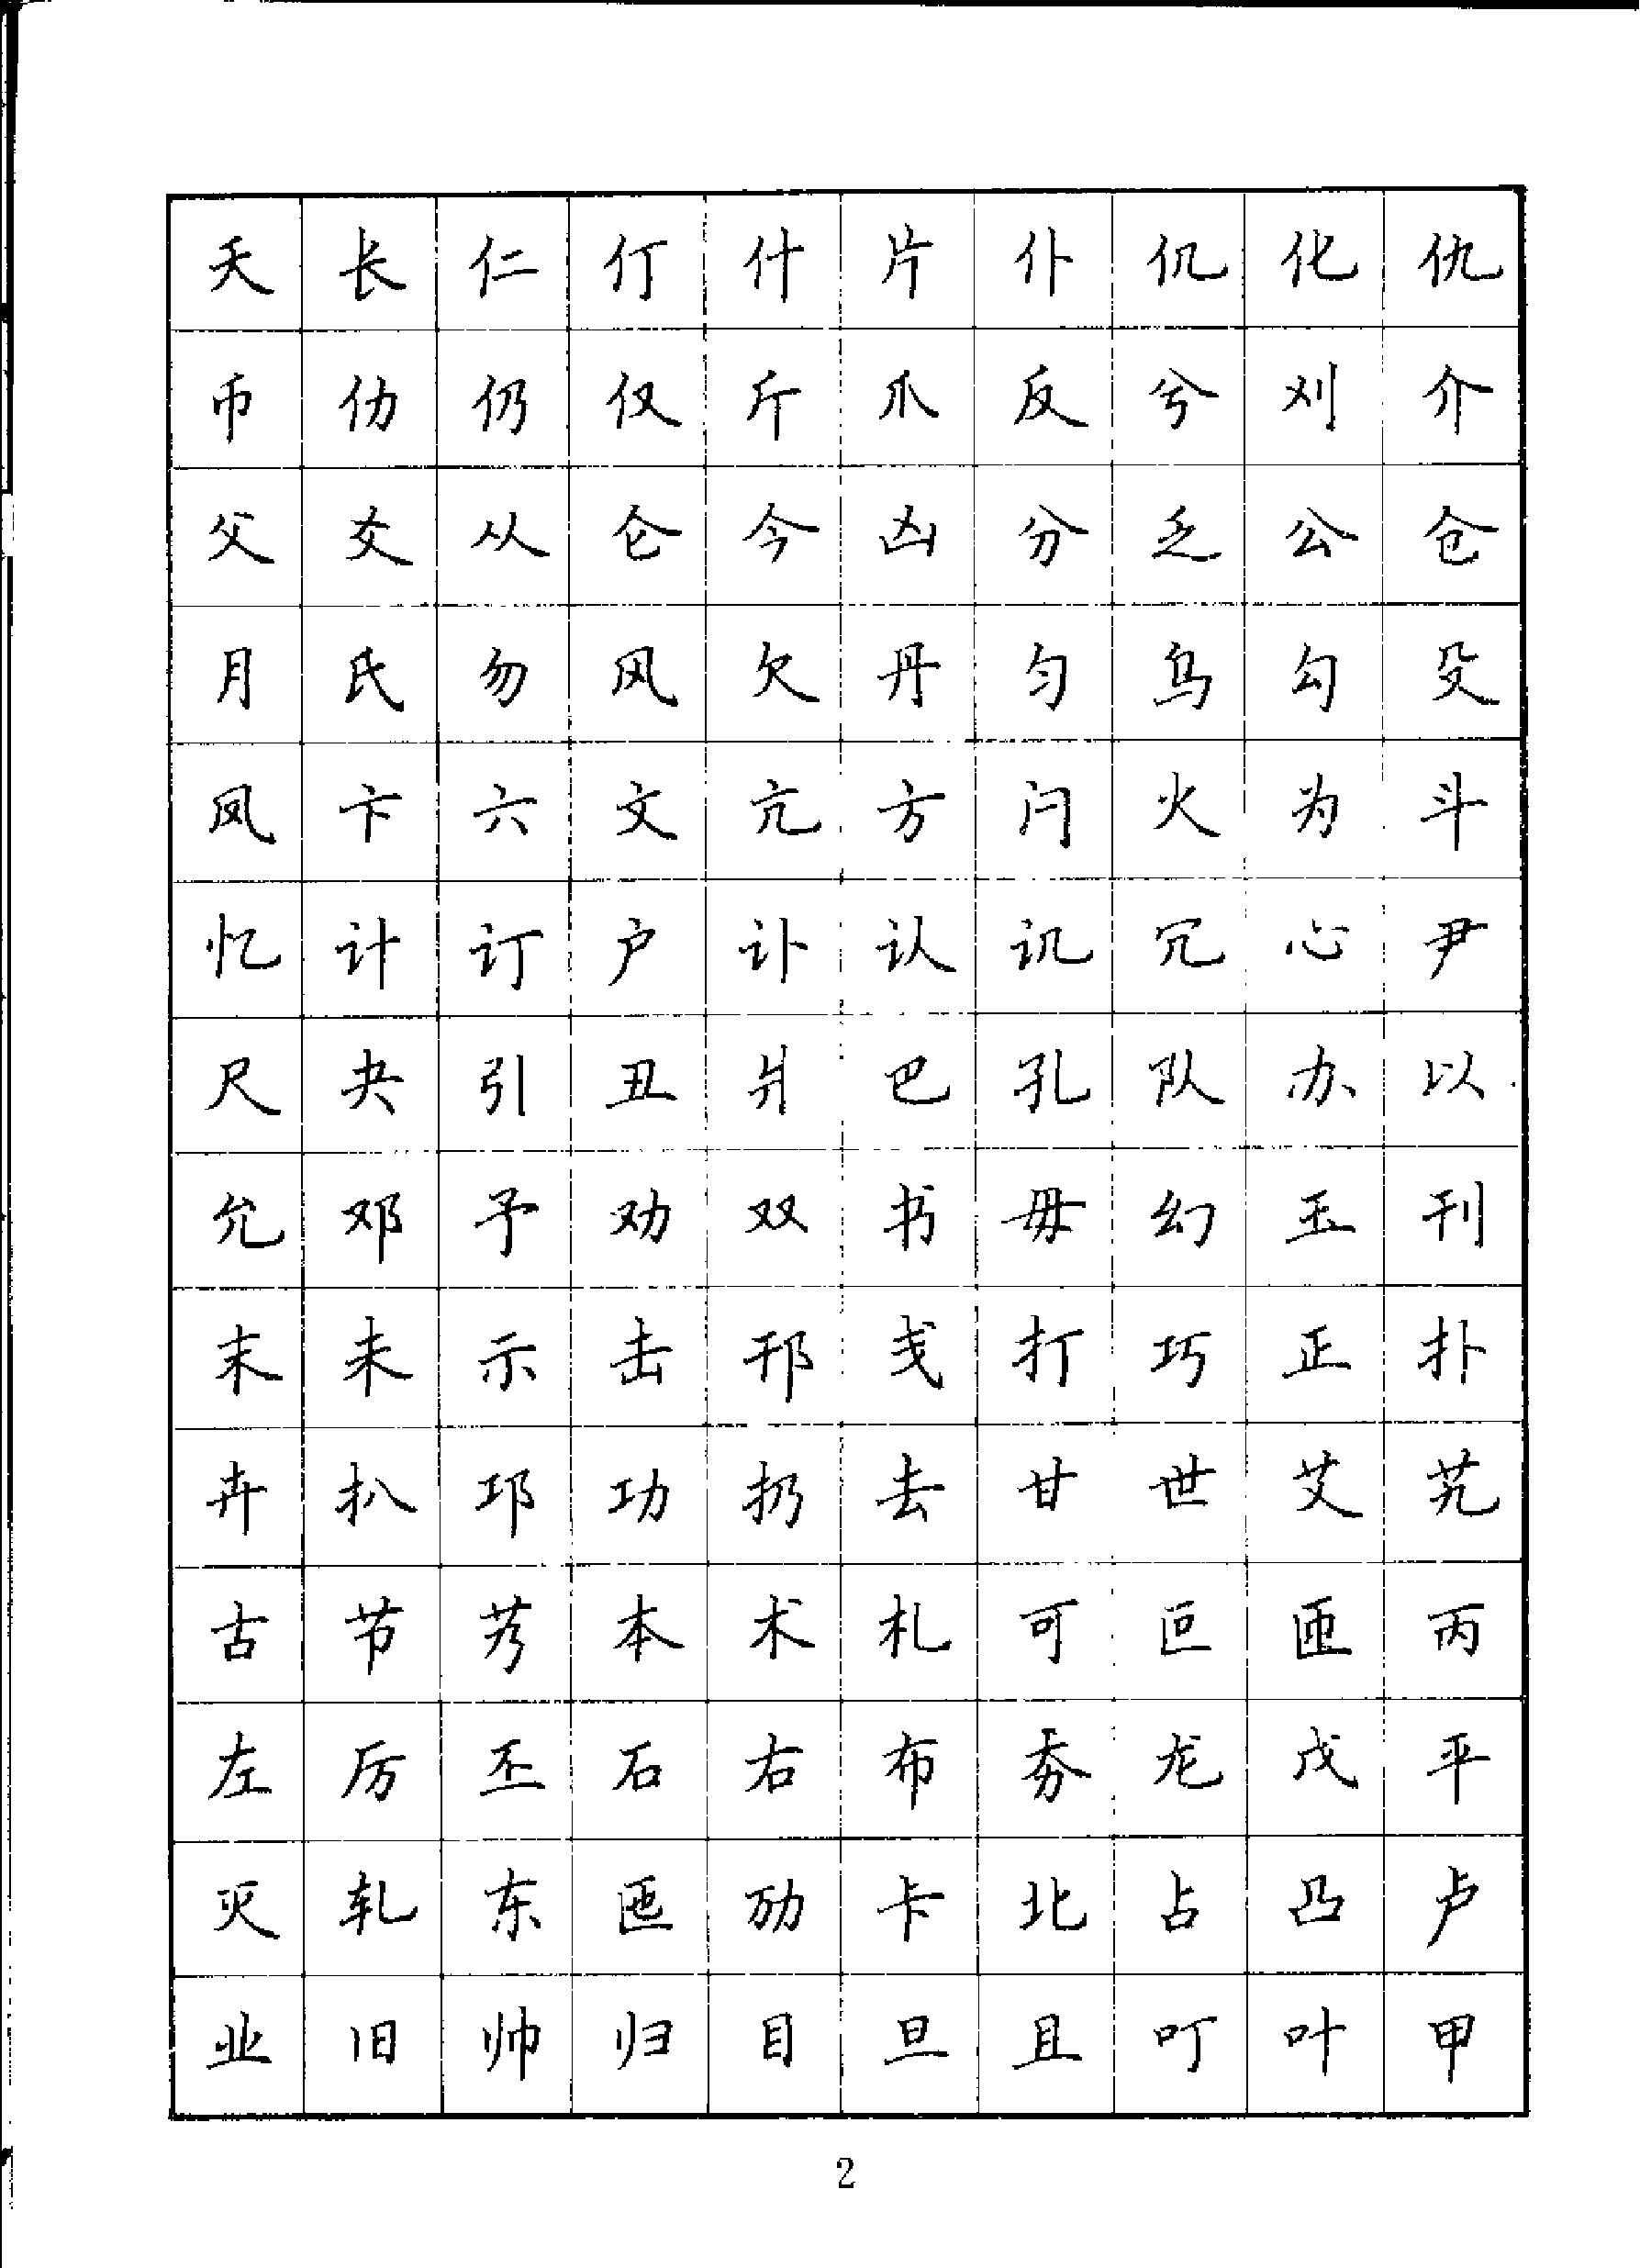 夭长仁仃什片仆仉化仇
币仂仍仅斤爪反兮刈介
父爻从仑今凶分乏公仓
月氏勿风欠丹匀乌勾殳
凤卞六文亢方闩火为斗
忆计订户讣认讥冗心尹
尺夬引丑爿巴孔队办以
允邓予劝双书毋幻玉刊
末未示击邗戋打巧正扑
卉扒邛功扔去甘世艾艽
古节艿本术札可叵匝丙
左厉丕石右布夯龙戊平
灭轧东匜劢卡北占凸卢
业旧帅归目旦且叮叶甲
2